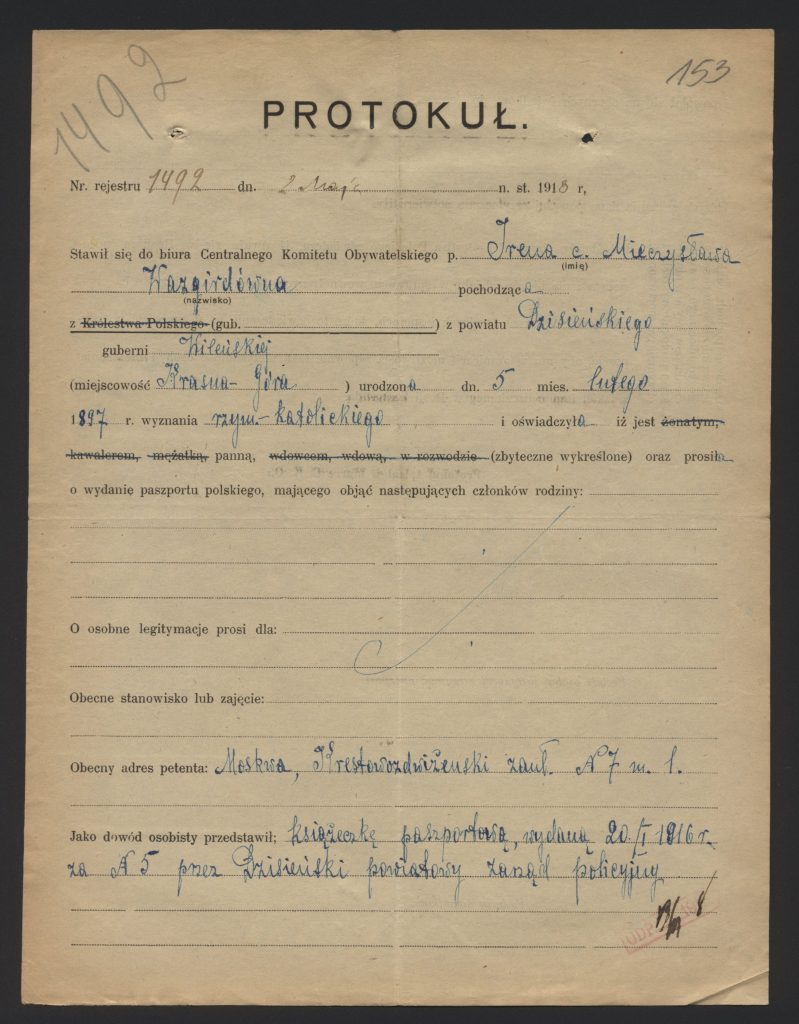 1492
153
PROTOKUŁ.
Nr. rejestru 1492 dn. 2 Maja n. st. 1918 r,
Stawił się do biura Centralnego Komitetu Obywatelskiego p. Irena c. Mieczysława
(imię)
Wazgirdówna pochodząca
(nazwisko)
z Królestwa Polskiego (gub. ) z powiatu Dzisieńskiego
guberni Wileńskiej
(miejscowość Krasna-Góra ) urodzona dn. 5 mies. lutego
1897 r. wyznania rzym-katolickiego i oświadczyła iż jest żonatym,
kawalerem, mężatką, panną, wdowcem, wdową, w rozwodzie (zbyteczne wykreślone) oraz prosiła
o wydanie paszportu polskiego, mającego objąć następujących członków rodziny:
O osobne legitymacje prosi dla:
Obecne stanowisko lub zajęcie:
Obecny adres petenta: Moskwa, Krestowozdwiżenski zauł. N 7 m. 1.
Jako dowód osobisty przedstawił: książeczkę paszportową, wydaną 20/I 1916 r.
za N 5 przez Dzisieński powiatowy zarząd policyjny